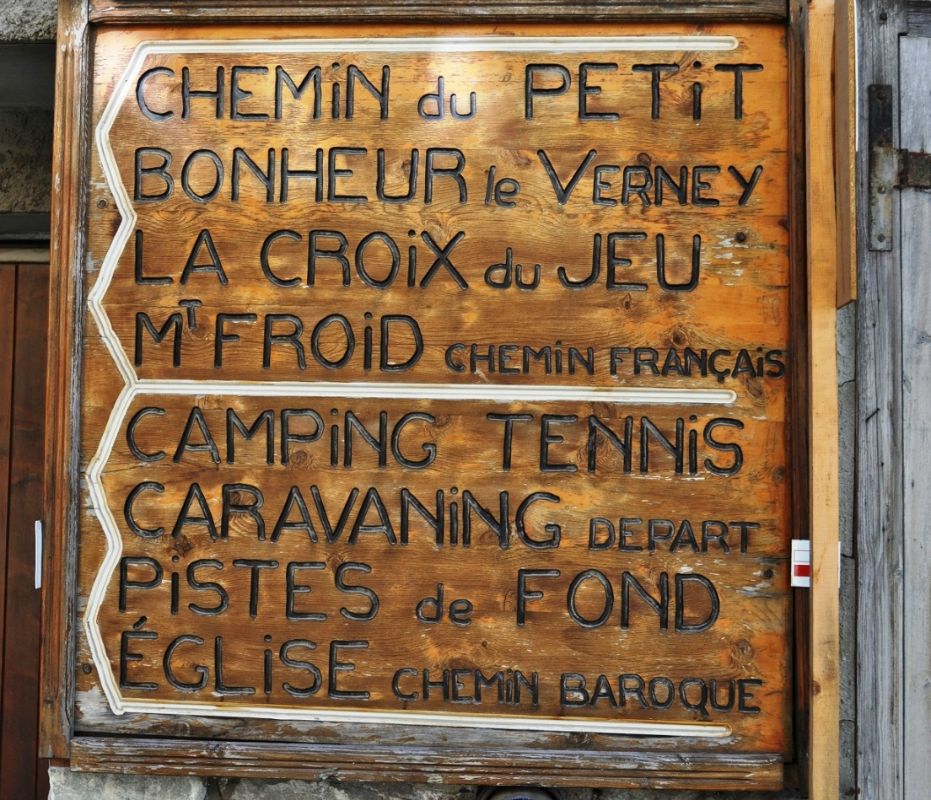 CHEMiN du PETiT
BONHEUR le VERNEY
LA CROiX du JEU
MT FROiD CHEMiN FRANÇAiS
CAMPiNG TENNiS
CARAVANiNG DEPART
PiSTES de FOND
ÉGLiSE CHEMiN BAROQUE